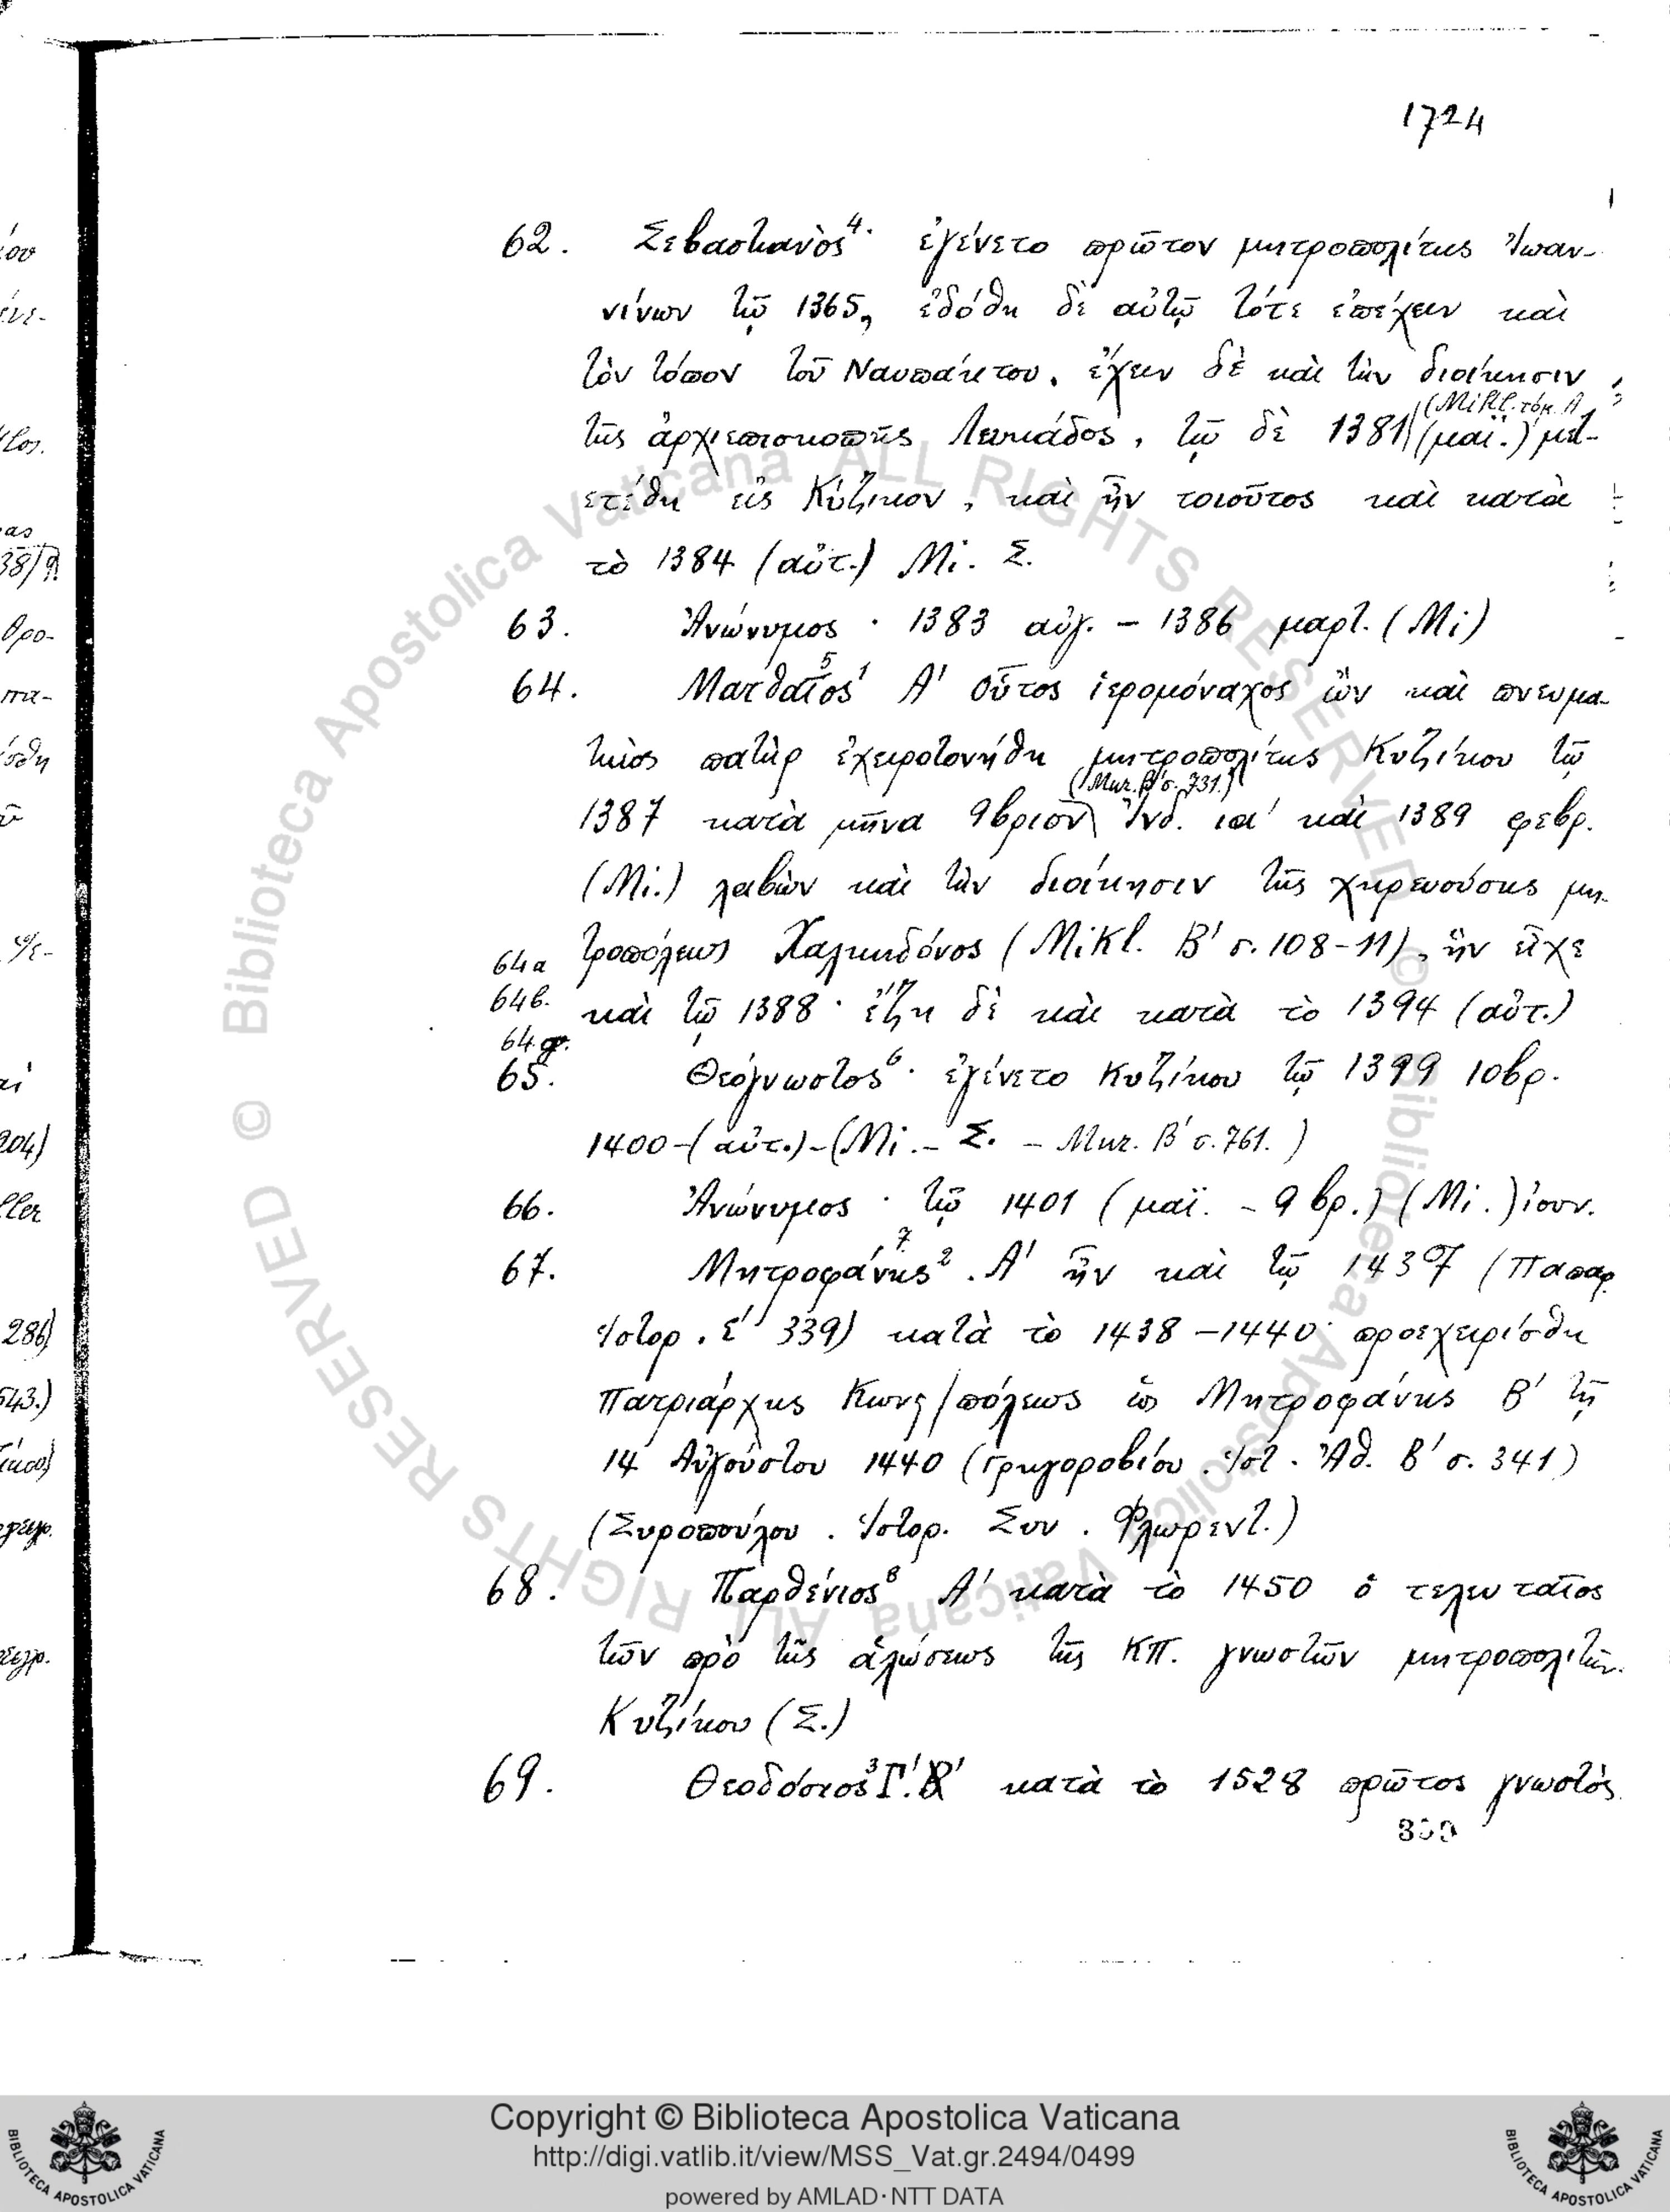 1724
62. Σεβαστιανὸς⁴· ἐγένετο πρῶτον μητροπολίτης Ἰωαν-
νίνων τῷ 1365, ἐδόθη δὲ αὐτῷ τότε ἐπέχειν καὶ
τὸν τόπον τοῦ Ναυπάκτου, ἔχειν δὲ καὶ τὴν διοίκησιν
(Mikl. τόμ. Α
τῆς ἀρχιεπισκοπῆς Λευκάδος, τῷ δὲ 1381 (μαϊ.) μετ-
ετέθη εἰς Κύζικον, καὶ ἦν τοιοῦτος καὶ κατὰ
τὸ 1384 (αὐτ.) Mi. Σ.
63. Ἀνώνυμος · 1383 αὐγ. – 1386 μαρτ. (Mi)
64. Ματθαῖος⁵ ¹ Α' οὗτος ἱερομόναχος ὢν καὶ πνευμα-
τικὸς πατὴρ ἐχειροτονήθη μητροπολίτης Κυζίκου τῷ
(Μηλ. Β' σ. 731.)
1387 κατὰ μῆνα 9βριον Ἰνδ. ια' καὶ 1389 φεβρ.
(Mi.) λαβὼν καὶ τὴν διοίκησιν τῆς χηρευούσης μη-
64α τροπόλεως Χαλκηδόνος (Mikl. Β' σ. 108-11), ἣν εἶχε
64β. καὶ τῷ 1388 · ἔζη δὲ καὶ κατὰ τὸ 1394 (αὐτ.)
64γ.
65. Θεόγνωστος⁶ · ἐγένετο Κυζίκου τῷ 1399 10βρ.
1400-(αὐτ.)-(Mi.- Σ. – Μηλ. Β' σ. 761.)
66. Ἀνώνυμος · τῷ 1401 (μαϊ. – 9βρ.) (Mi.) ἰουν.
67. Μητροφάνης⁷ ². Α' ἦν καὶ τῷ 1437 (Παπαρ.
Ἱστορ. Ε' 339) κατὰ τὸ 1438 – 1440 · προεχειρίσθη
Πατριάρχης Κωνς/πόλεως ὡς Μητροφάνης Β' τῇ
14 Αὐγούστου 1440 (Γρηγοροβίου. Ἱστ. Ἀθ. Β' σ. 341)
(Συροπούλου. Ἱστορ. Συν. Φλωρεντ.)
68. Παρθένιος⁸ Α' κατὰ τὸ 1450 ὁ τελευταῖος
τῶν πρὸ τῆς ἁλώσεως τῆς ΚΠ. γνωστῶν μητροπολιτῶν
Κυζίκου (Σ.)
69. Θεοδόσιος³ Γ'. Β' κατὰ τὸ 1528 πρῶτος γνωστὸς
© Biblioteca Apostolica Vaticana ALL RIGHTS RESERVED © Biblioteca Apostolica Vaticana ALL RIGHTS RESERVED
Copyright © Biblioteca Apostolica Vaticana
http://digi.vatlib.it/view/MSS_Vat.gr.2494/0499
powered by AMLAD·NTT DATA
BIBLIOTECA APOSTOLICA VATICANA
BIBLIOTECA APOSTOLICA VATICANA